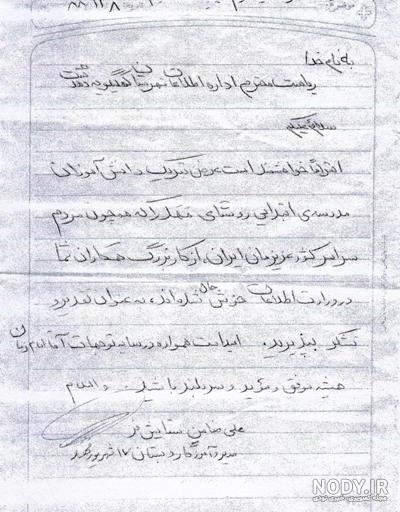 ۸۸/۱۲/۸
به نام خدا
ریاست محترم اداره اطلاعات شهرستان کهگیلویه دهدشت
سلام علیکم
احتراماً خواهشمند است عرض تبریک دانش آموزان
مدرسه‌ی ابتدایی روستای را که همچون مردم
سراسر کشور عزیزمان ایران، از کار بزرگ همکاران شما
در وزارت اطلاعات خوش حال شده‌اند، به عنوان تقدیر و
تشکر بپذیرید. امید است همواره در سایه توجهات آقا امام زمان
همیشه موفق و مؤید و سربلند باشید. والسلام
علی ضامن ستایش فر
مدیر و آموزگار دبستان ۱۷ شهریور
NODY.IR